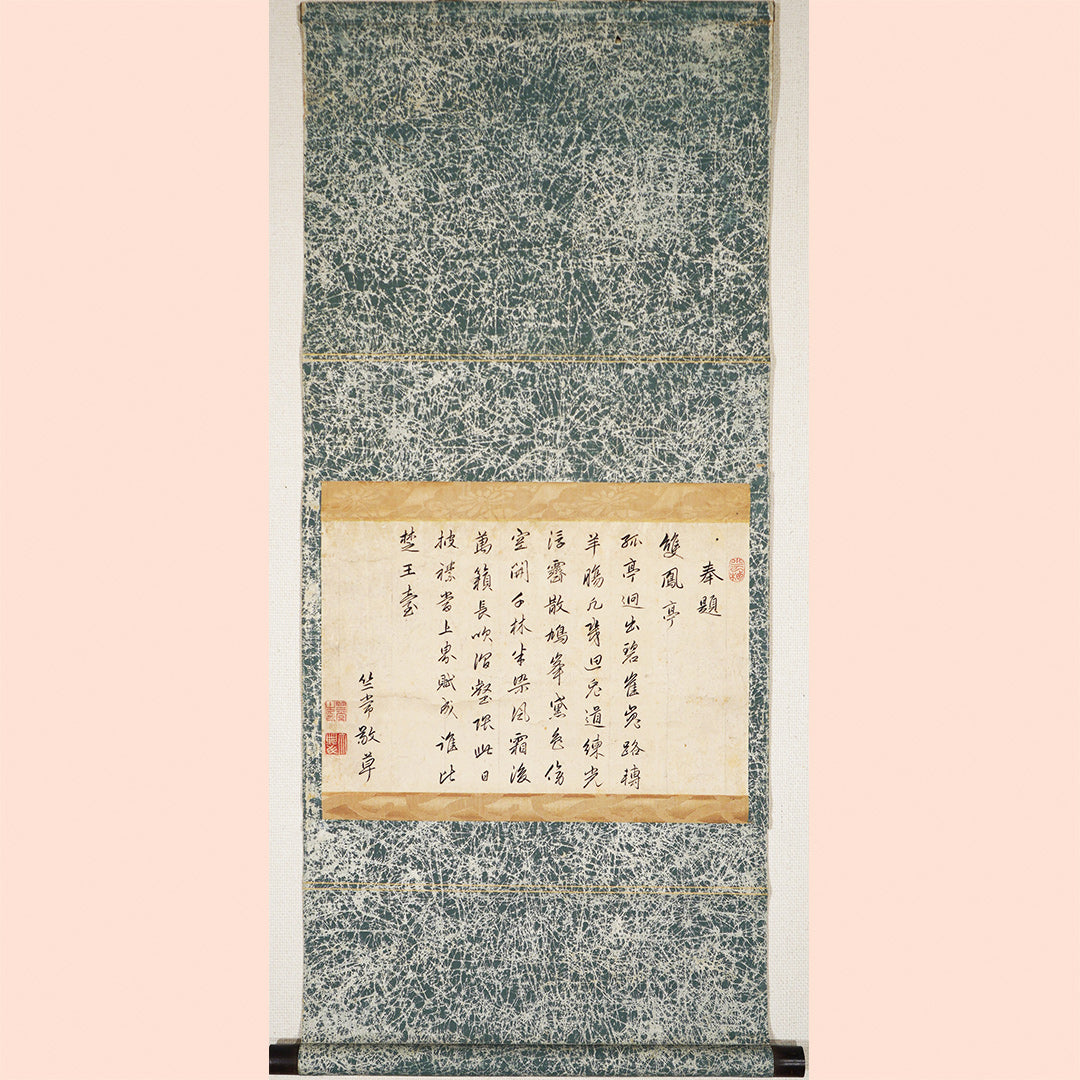 奉題
雙鳳亭
孤亭迥出碧崔嵬路轉
羊腸凡幾回兔道練光
浮靄散鳩峯黛色傍
空開千林半染風霜後
萬籟長吹澗壑隈此日
披襟當上界賦成誰比
楚王臺
竺常敬草